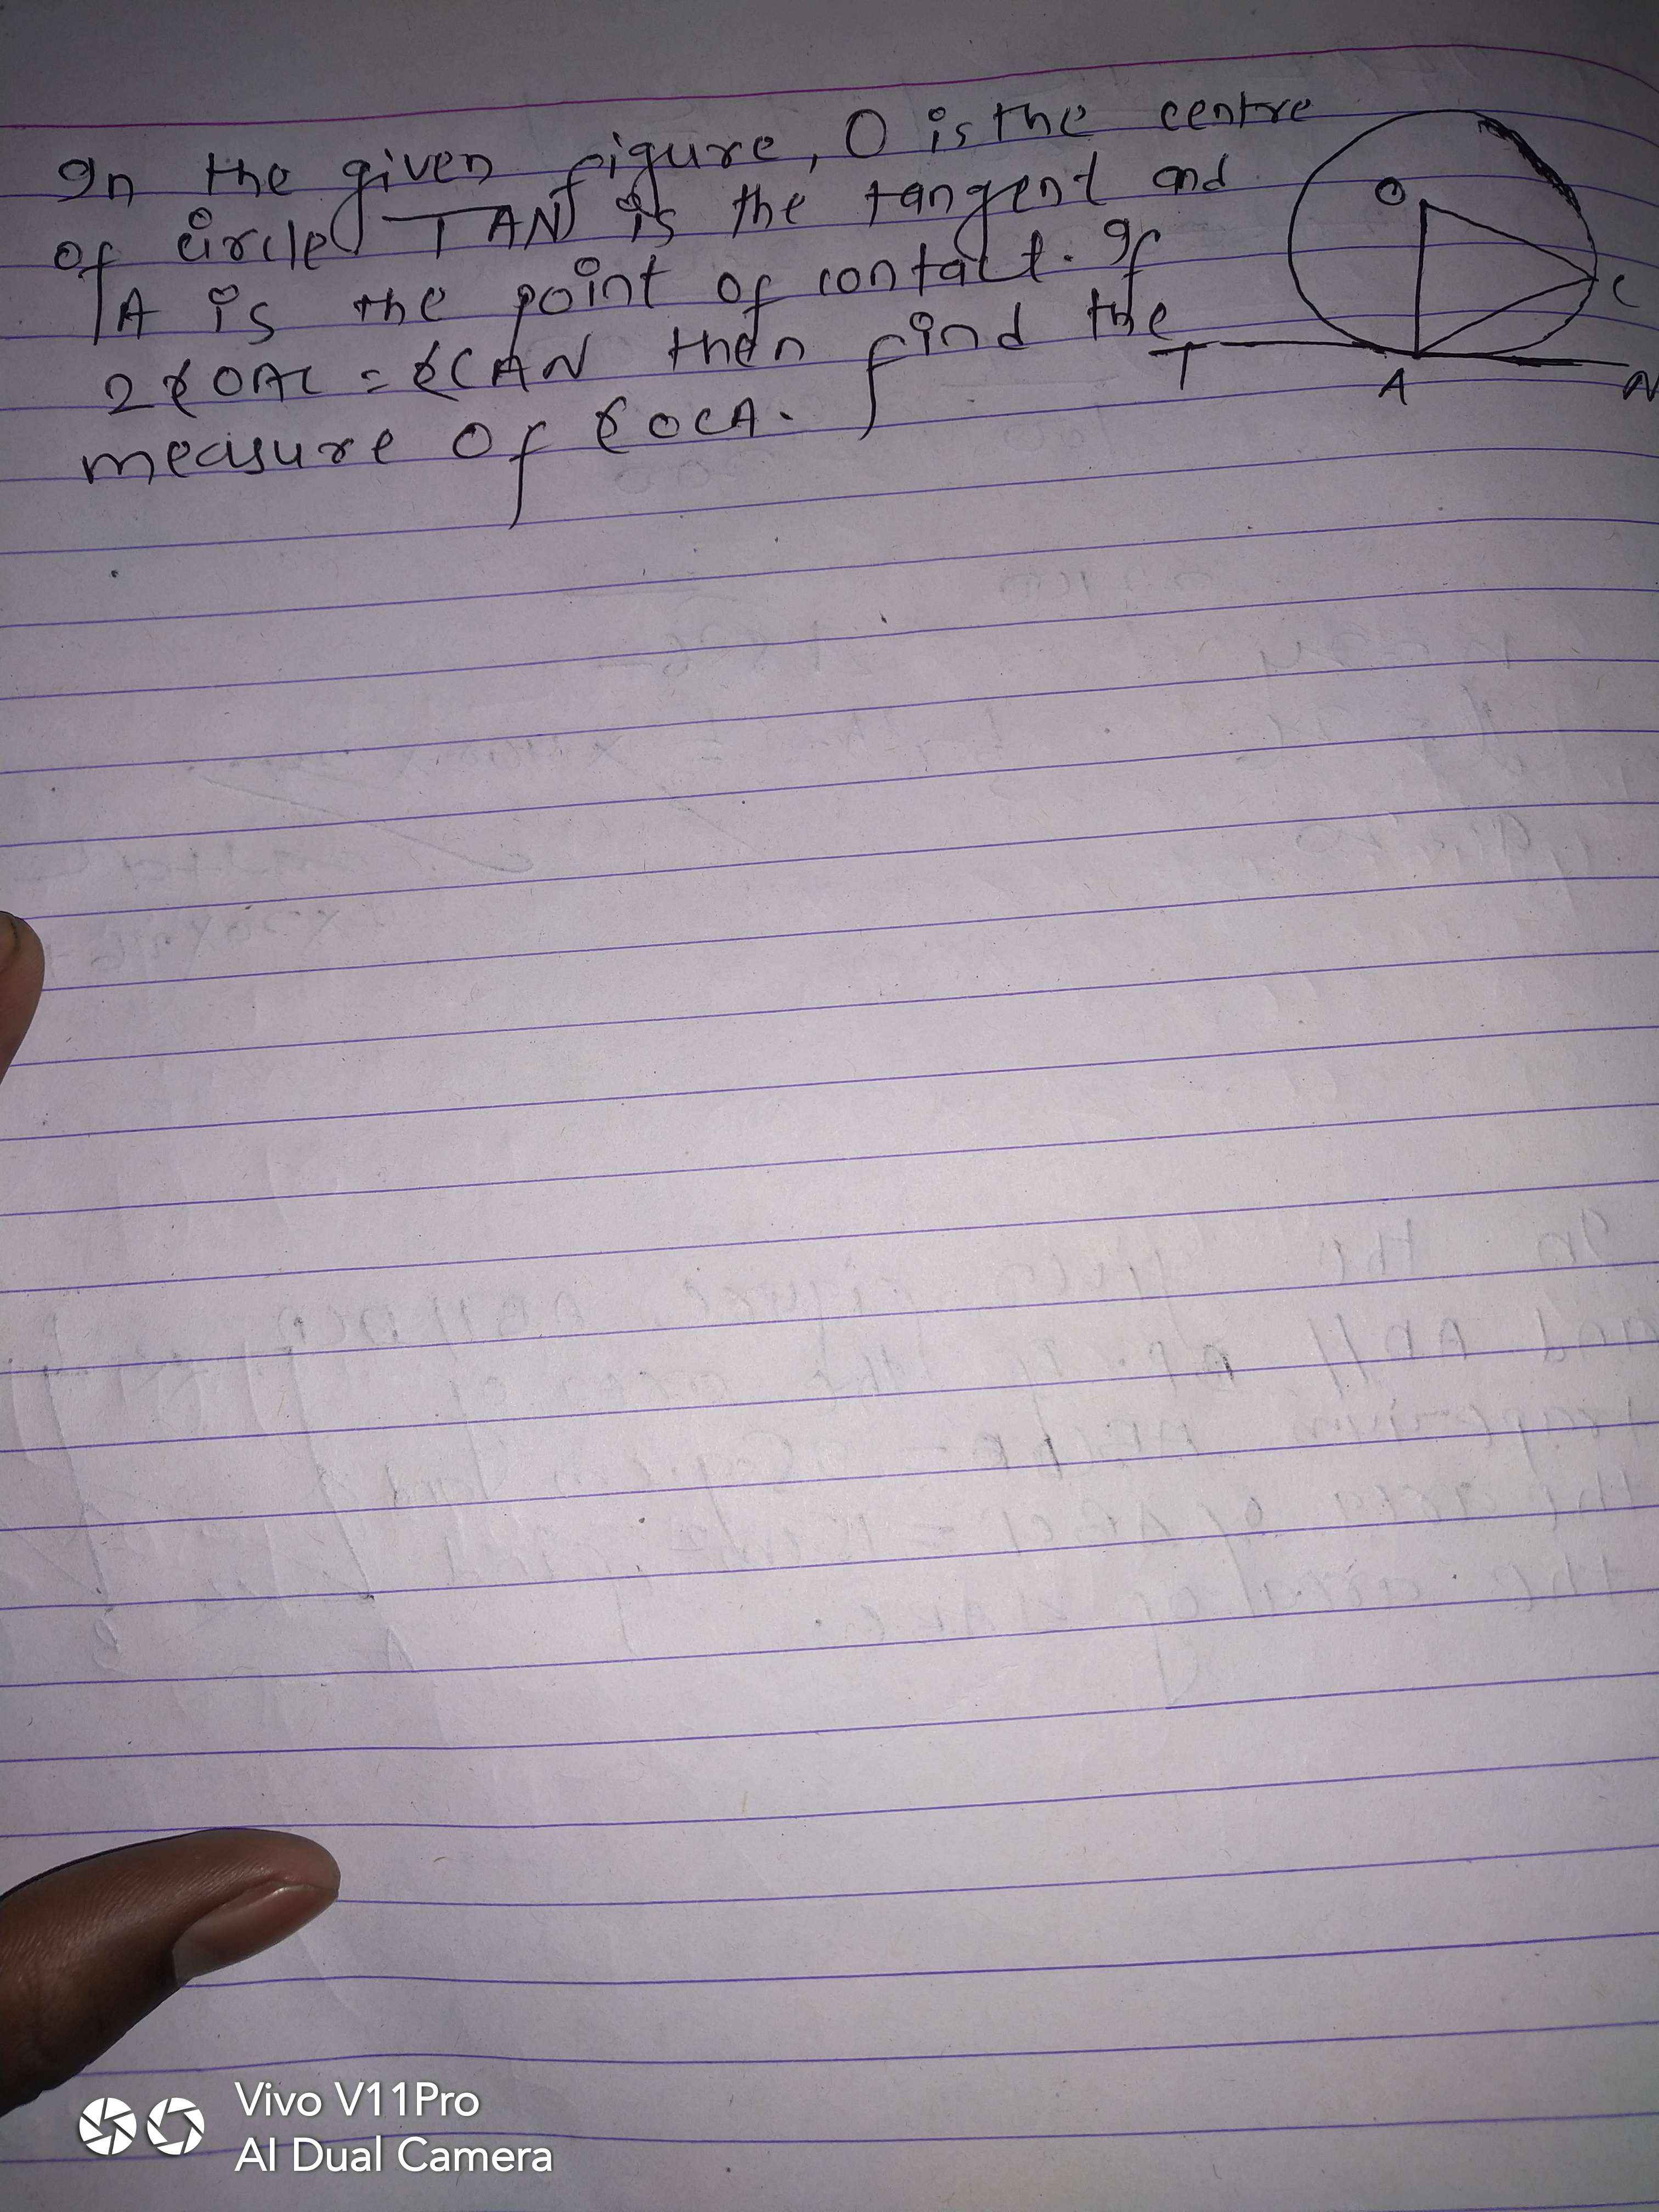 In the given figure, O is the centre
of circle TAN is the tangent and
A is the point of contact. If
2∠OAC = ∠CAN then find the
measure of ∠OCA.
O
C
T
A
N
Vivo V11Pro
AI Dual Camera